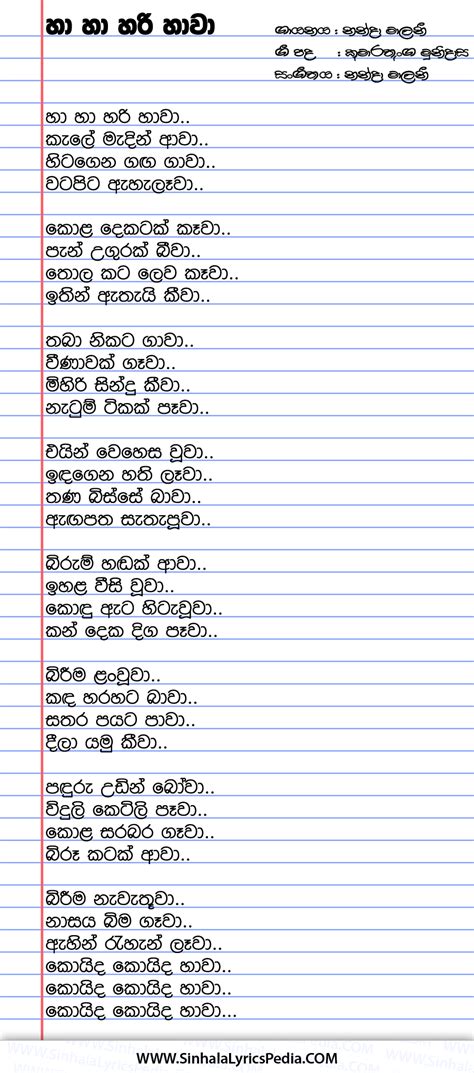 හා හා හරි හාවා
ගායනය : නන්දා මාලනී
ගී පද : කුමාරතුංග මුනිදාස
සංගීතය : නන්දා මාලනී
හා හා හරි හාවා..
කැලේ මැදින් ආවා..
හිටගෙන ගඟ ගාවා..
වටපිට ඇහැලෑවා..
කොළ දෙකටක් කෑවා..
පැන් උගුරක් බීවා..
තොල කට ලෙව කෑවා..
ඉතින් ඇතැයි කීවා..
තබා නිකට ගාවා..
වීණාවක් ගෑවා..
මිහිරි සින්දු කීවා..
නැටුම් ටිකක් පෑවා..
එයින් වෙහෙස වූවා..
ඉඳගෙන හති ලෑවා..
තණ බිස්සේ බාවා..
ඇඟපත සැතැපූවා..
බිරුම් හඬක් ආවා..
ඉහළ වීසි වූවා..
කොඳු ඇට හිටැවූවා..
කන් දෙක දිග පෑවා..
බිරීම ළංවූවා..
කඳ හරහට බාවා..
සතර පයට පාවා..
දීලා යමු කීවා..
පඳුරු උඩින් බෝවා..
විදුලි කෙටිලි පෑවා..
කොළ සරබර ගෑවා..
බිරූ කටක් ආවා..
බිරීම නැවැතූවා..
නාසය බිම ගෑවා..
ඇහින් රැහැන් ලෑවා..
කොයිද කොයිද හාවා..
කොයිද කොයිද හාවා..
කොයිද කොයිද හාවා...
WWW.SinhalaLyricsPedia.COM